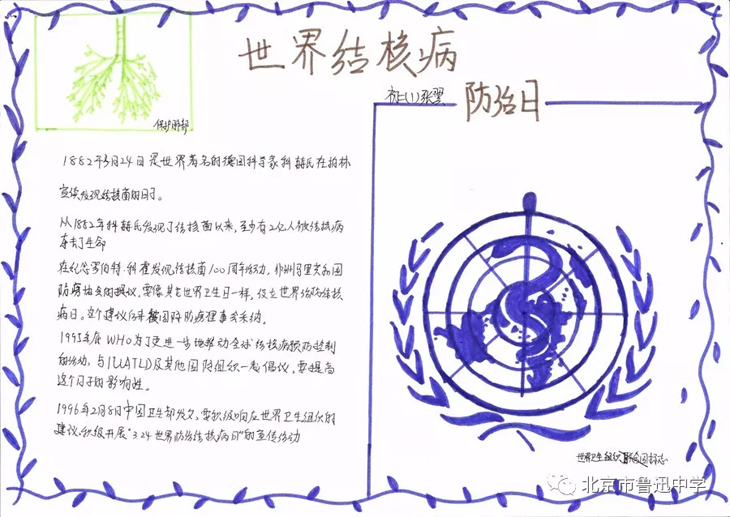 世界结核病
防治日
初二(1)张翼
保护肺部
1882年3月24日是世界著名的德国科学家科赫氏在柏林
宣读发现结核菌的日子。
从1882年科赫氏发现了结核菌以来,至少有2亿人被结核病
夺去了生命
在纪念罗伯特·科霍发现结核菌100周年活动,非洲马里共和国
防痨协会的提议,要像其它世界卫生日一样,设立世界防治结核
病日。这个建议后来被国际防痨理事会采纳。
1995年底WHO为了更进一步地推动全球结核病预防控制
的活动,与IUATLD及其他国际组织一起倡议,要提高
这个日子的影响性。
1996年2月8日中国卫生部发文,要积极响应世界卫生组织的
建议,积极开展“3.24世界防治结核病日”的宣传活动
世界卫生组织 标志
北京市鲁迅中学